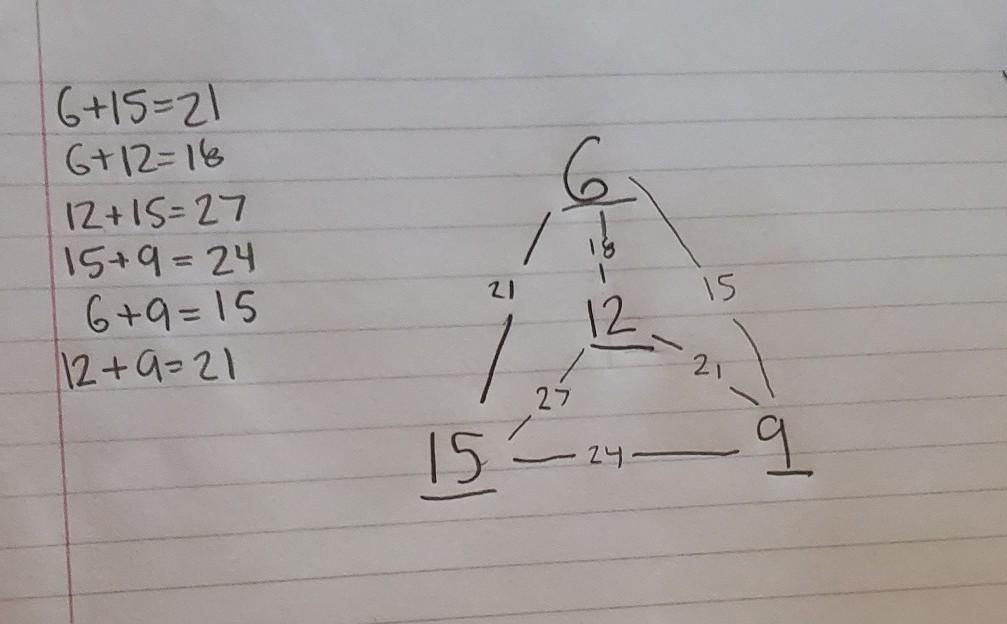 6+15=21
6+12=18
12+15=27
15+9=24
6+9=15
12+9=21
6
18
21
15
12
21
27
15
24
9